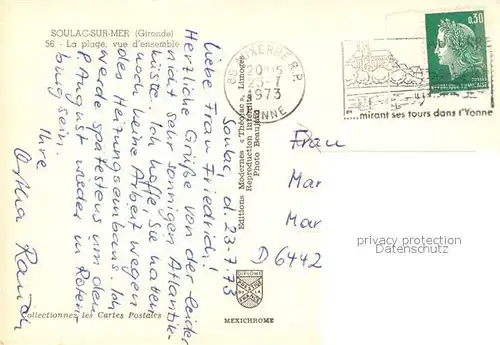 SOULAC-SUR-MER (Gironde)
56 - La plage, vue d'ensemble
Soulac, d. 23.7.73
Liebe Frau Friedrich!
Herzliche Grüße von der leider
nicht sehr sonnigen Atlantik-
küste. Ich hoffe, Sie hatten
noch keine Arbeit wegen
des Heizungseinbaus. Ich
werde spätestens um den
8. August wieder in Rotenburg sein.
Ihre
Editions Modernes « Théojac », Limoges
Reproduction interdite
Photo Beaujard
89 AUXERRE R.P.
1973
YONNE
AUXERRE
...mirant ses tours dans l'Yonne
0,30
REPUBLIQUE FRANÇAISE
Frau
Mar
Mar
D 6442
privacy protection
Datenschutz
DIPLOME
PRESTIGE
DE LA
FRANCE
Collectionnez les Cartes Postales
MEXICHROME